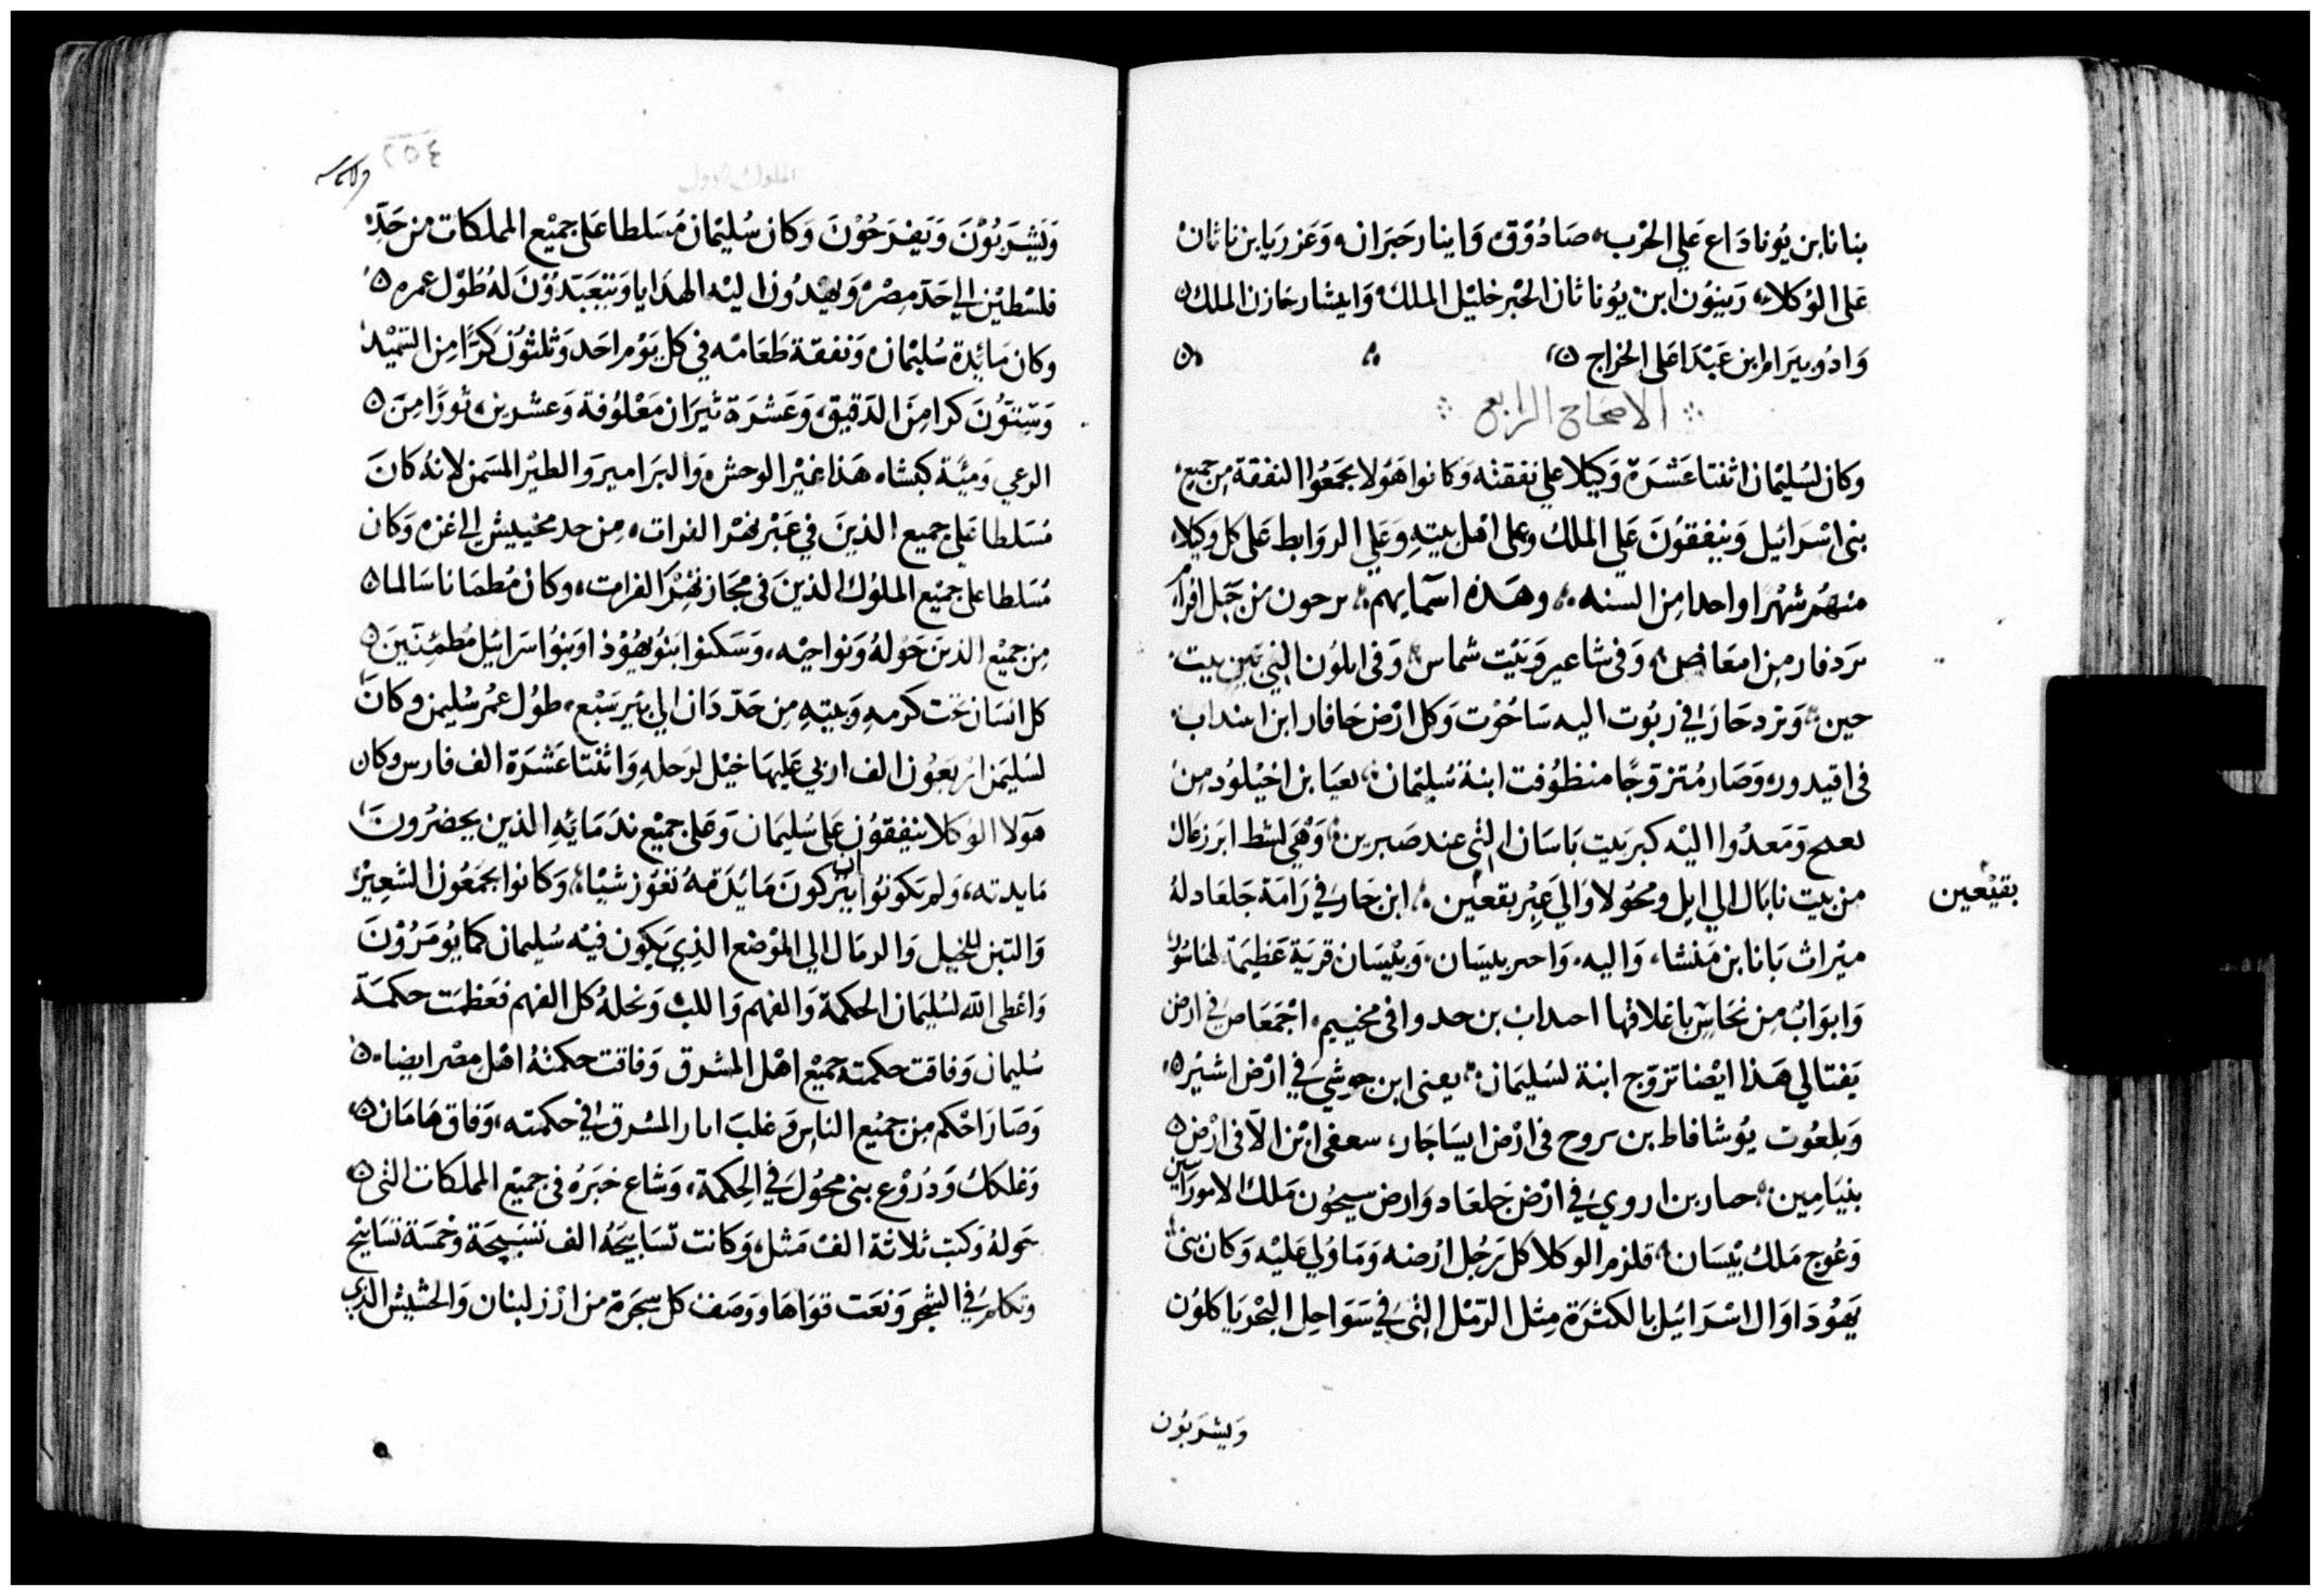 بنانا بن يوناداع علي الحرب صادوق وابنار حبران وعزريا بن ناثان
على الوكلاء زبيون ابن يوناثان الحبر خليل الملك وايشار خازن الملك
وادونيرام ابن عبدا على الخراج
الاصحاح الرابع
وكان لسليمان اثنتا عشرة وكيلا علي نفقته وكانوا هولا يجمعوا النفقة من جميع
بنى اسرائيل وينفقون علي الملك وعلى اهل بيته وعلي الروابط على كل وكيلا
منهم شهرا واحدا من السنه وهذه اسمايهم برحون من جبل افرام
بردفار من امعاص وفى شاعير وبيت شماس وفى ايلون التي بين بيت
حين وبردحاز في ربوت اليه ساخوت وكل ارض حافار ابن ابنداب
فى اقيدور وصار متزوجا منظوفت ابنة سليمان بعيا بن اخيلود من
بعلح ومعدوا اليه كبر بيت باسان التي عند صبرين وهي لشط ابرزعال
من بيت نابال الي ابل ومحولا والي عبر بقعين ابن حار في رامة جلعاد له
بقيعين
ميراث بانا بن منشا واليه واحر بليسان وبليسان قرية عظيمة لها سور
وابواب من نحاس باغلاقها احداب بن حدوا فى مخييم اجمعاص في ارض
يفتالي هذا ايضا تزوج ابنة لسليمان يعنى ابن جوشي في ارض اشير
وبلعوت يوشافاط بن بروح فى ارض ايساجار سعفى ابن الا فى ارض
بنيامين حصار بن اروي في ارض جلعاد وارض سيحون ملك الامورايين
وعوج ملك بيسان فلزم الوكلا كل رجل ارضه وما ولي عليه وكان بنى
يهودا وال اسرائيل بالكثرة مثل الرمل التى في سواحل البحر ياكلون
ويشربون
الملوك الاول
ويشربون ويفرحون وكان سليمان مسلطا على جميع المملكات من حد
فلسطين الى حد مصر ويهدون اليه الهدايا ويتعبدون له طول عمره
وكان مائدة سليمان ونفقة طعامه في كل يوم احد وثلثون كرا من السميد
وستون كرا من الدقيق وعشرة ثيران معلوفة وعشرين ثورا من
الرعي ومئة كبشاه هذا غير الوحش والبرامير والطير المسمن لانه كان
مسلطا على جميع الذين في عبر نهر الفرات من حد مخييش الى غزه وكان
مسلطا على جميع الملوك الذين فى مجاز نهر الفرات وكان مطمانا سالما
من جميع الذين حوله ونواحيه وسكنوا بنو يهوذا وبنوا سرائيل مطمئنين
كل انسان تحت كرمه وبيته من حد دان الي بير سبع طول عمر سليمن وكان
لسليمن اربعون الف اري عليها خيل لرحله واثنتا عشرة الف فارس وكان
هولا الوكلا ينفقون على سليمان وعلى جميع ندمائه الذين يحضرون
مايدته ولم يكونوا ان يتركون مايدته تعوز شيا وكانوا يجمعون الشعير
والتبن للخيل والرمال الي الموضع الذي يكون فيه سليمان كما يومرون
واعطى الله لسليمان الحكمة والفهم واللب ونحله كل الفهم فعظمت حكمة
سليمان وفاقت حكمته جميع اهل المشرق وفاقت حكمته اهل مصر ايضا
وصار احكم من جميع الناس وغلب ابار المشرق في حكمته وفاق هامان
وغلكك ودروع بنى محول في الحكمة وشاع خبره فى جميع المملكات التى
حوله وكتب ثلاثة الف مثل وكانت تسابيحه الف تسبيحة وخمسة تسابيح
وتكلم في الشجر ونعت قواها ووصف كل شجرة من ارز لبنان والحشيش الذي